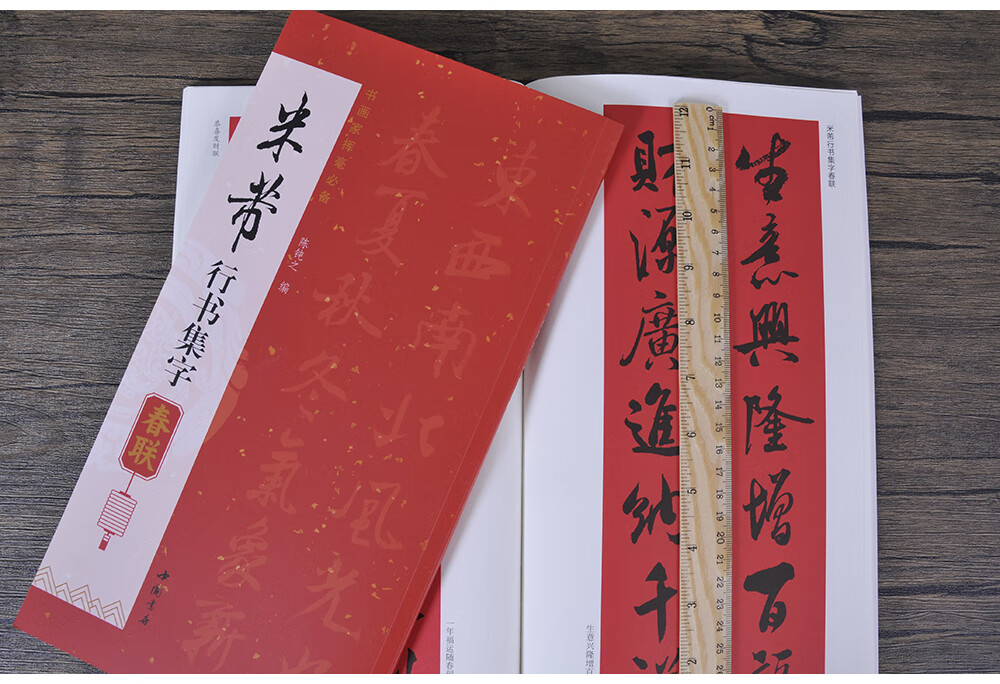 米芾
行书集字
春联
书画家挥毫必备
陈钝之 编
中国书店
东西南北风光
春夏秋冬气象新
恭喜发财联
米芾行书集字春联
生意興隆增百福
財源廣進納千祥
一年福运随春
生意兴隆增百
cm 1 2 3 4 5 6 7 8 9 10 11 12 13 14 15 16 17 18 19 20 21 22 23 24 25 26
12 11 10 9 8 7 6 5 4 3 2